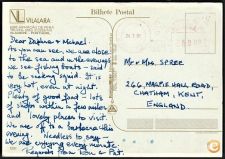 Bilhete Postal
VILALARA
Dear Daphne & Michael.
As you can see, we are close
to the sea and in the evenings
we see fishing boats - said
to be seeking squid. It is
very hot, even at night.
Plenty of good food - lots
of shops within a few miles
and lovely places to visit
We are off to a barbecue this
evening. Needless to say
we are enjoying every minute.
Regards from Ron & Pat.
Mr & Mrs. SPREE
266, MAGPIE HALL ROAD,
CHATHAM, KENT,
ENGLAND